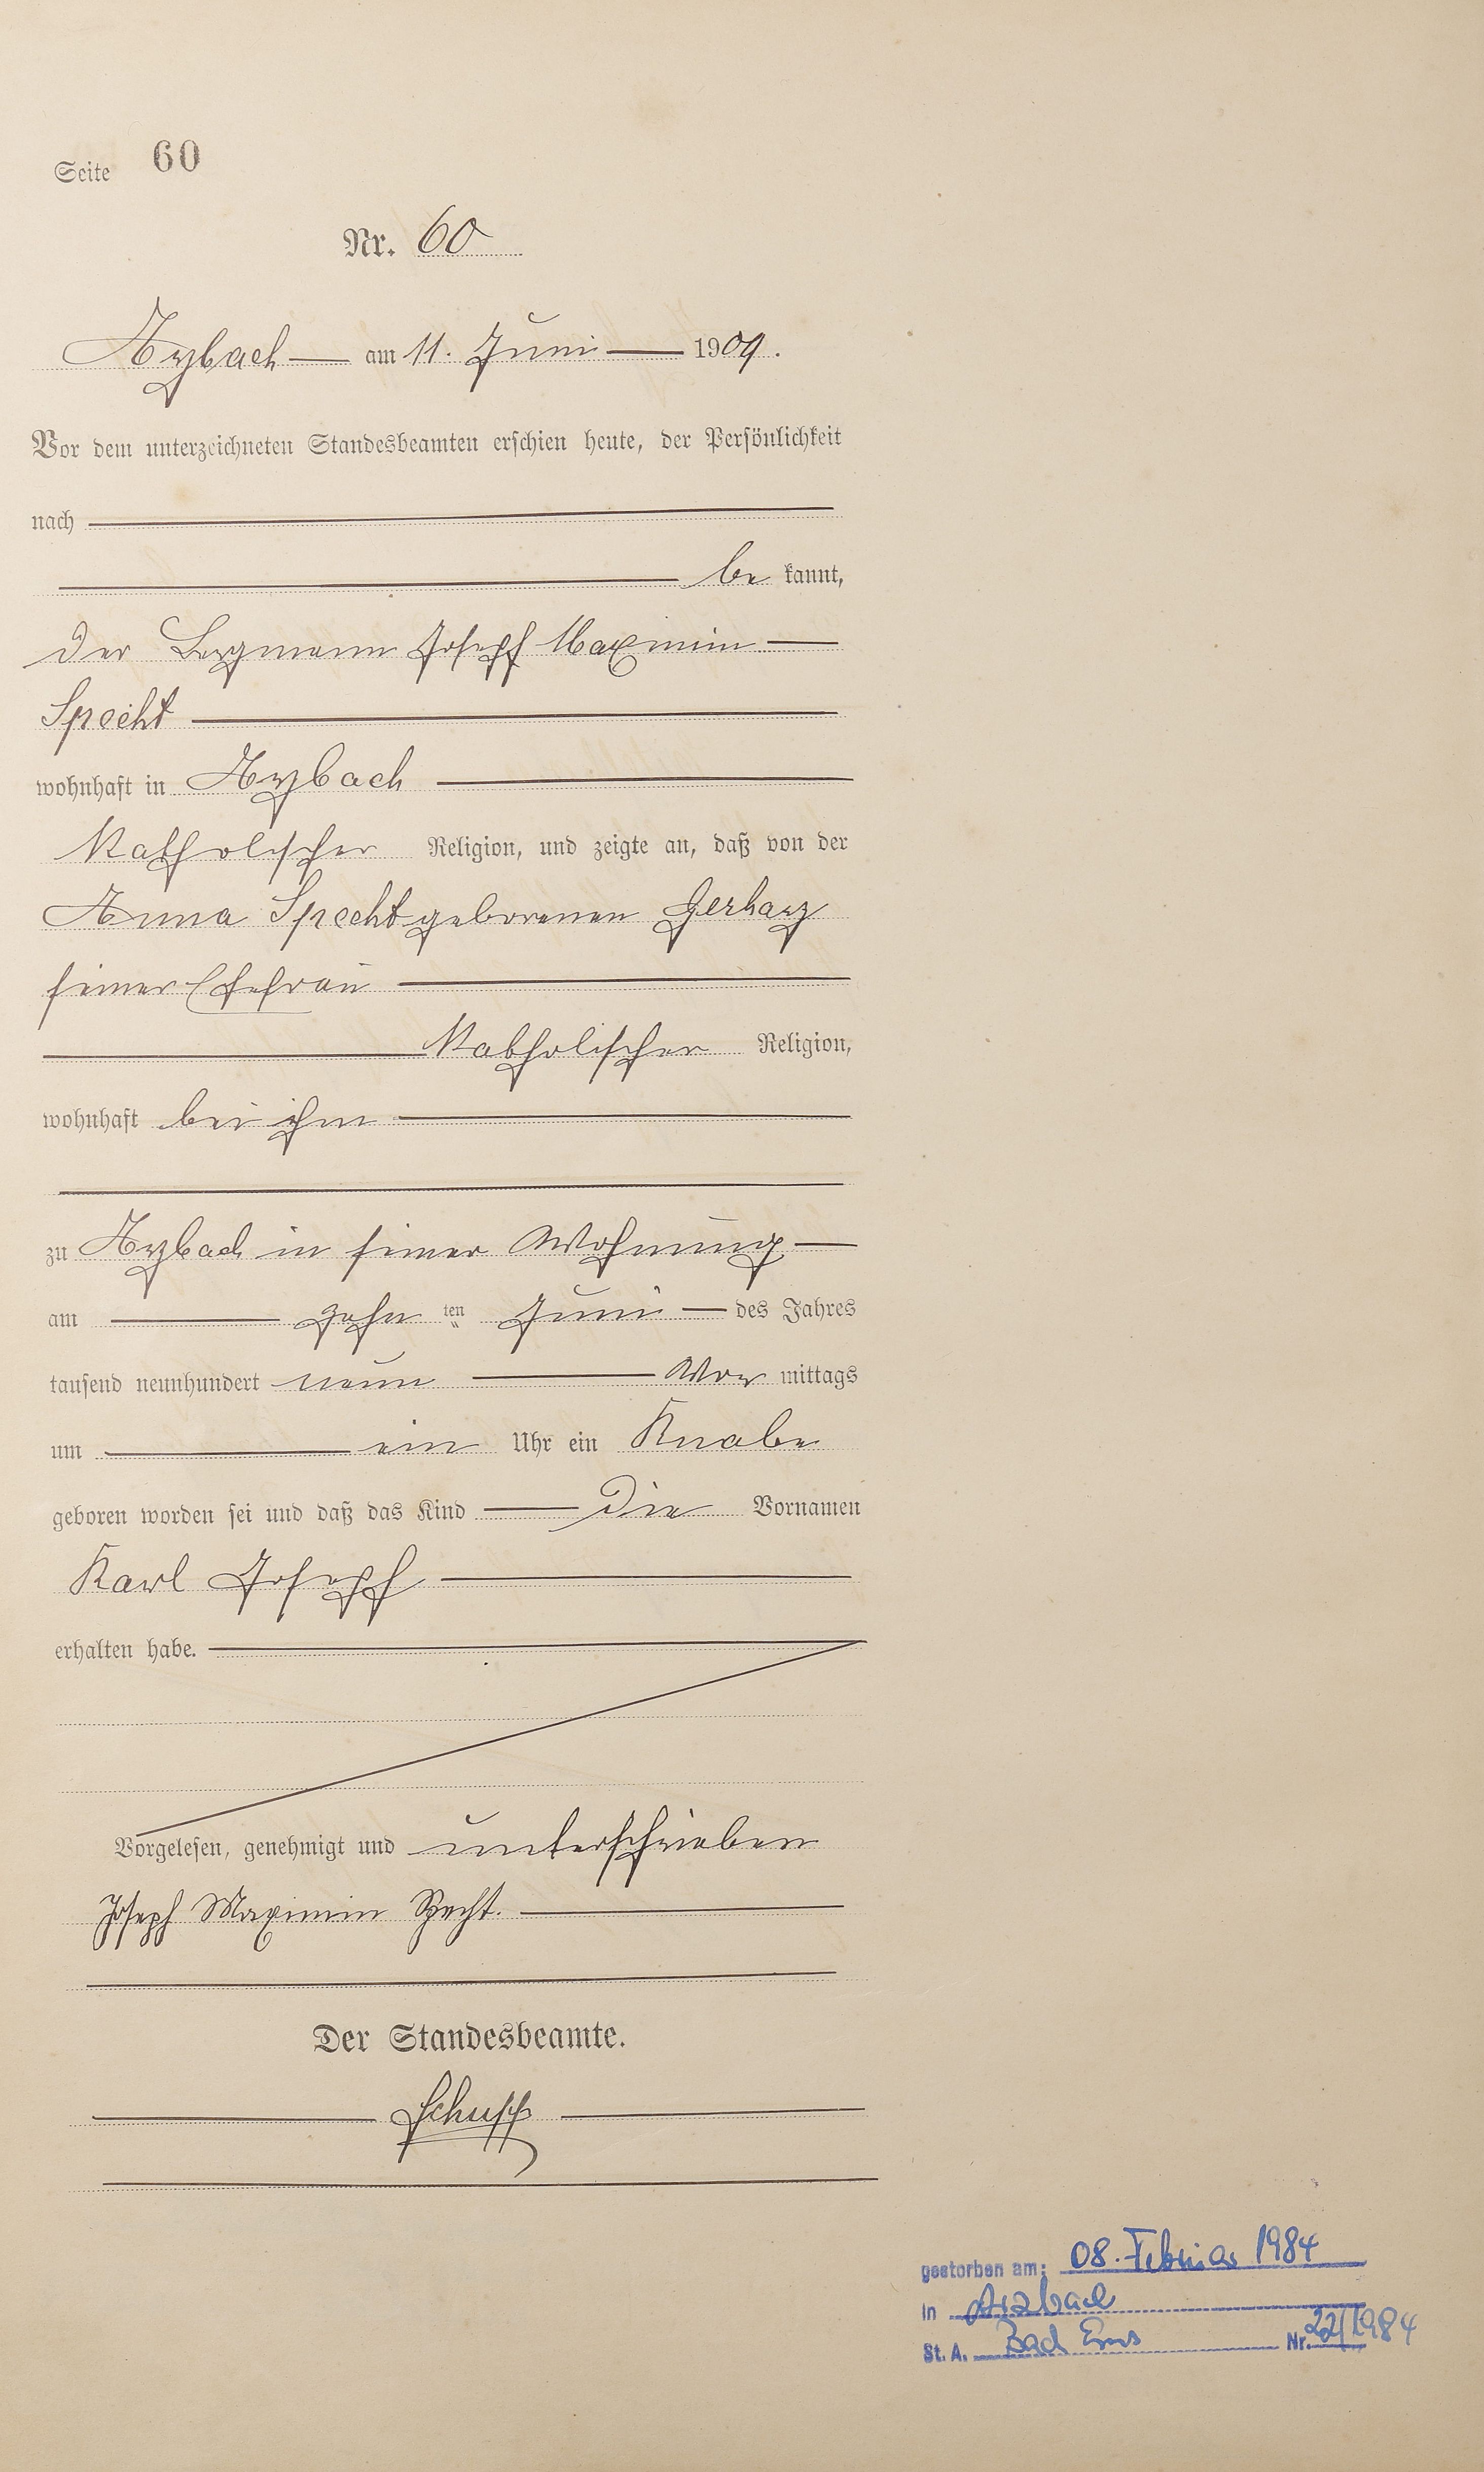 Seite 60
Nr. 60
Arzbach am 11. Juni 1909.
Vor dem unterzeichneten Standesbeamten erschien heute, der Persönlichkeit
nach
be kannt,
der Bergmann Joseph Maximin
Specht
wohnhaft in Arzbach
katholischer Religion, und zeigte an, daß von der
Anna Specht geborenen Gerharz
seiner Ehefrau
katholischer Religion,
wohnhaft bei ihm
zu Arzbach in seiner Wohnung
am zehn ten Juni des Jahres
tausend neunhundert neun Vor mittags
um ein Uhr ein Knabe
geboren worden sei und daß das Kind die Vornamen
Karl Joseph
erhalten habe.
Vorgelesen, genehmigt und unterschrieben
Joseph Maximin Specht.
Der Standesbeamte.
gestorben am: 08. Februar 1984
in Arzbach
St. A. Bad Ems Nr. 22/1984